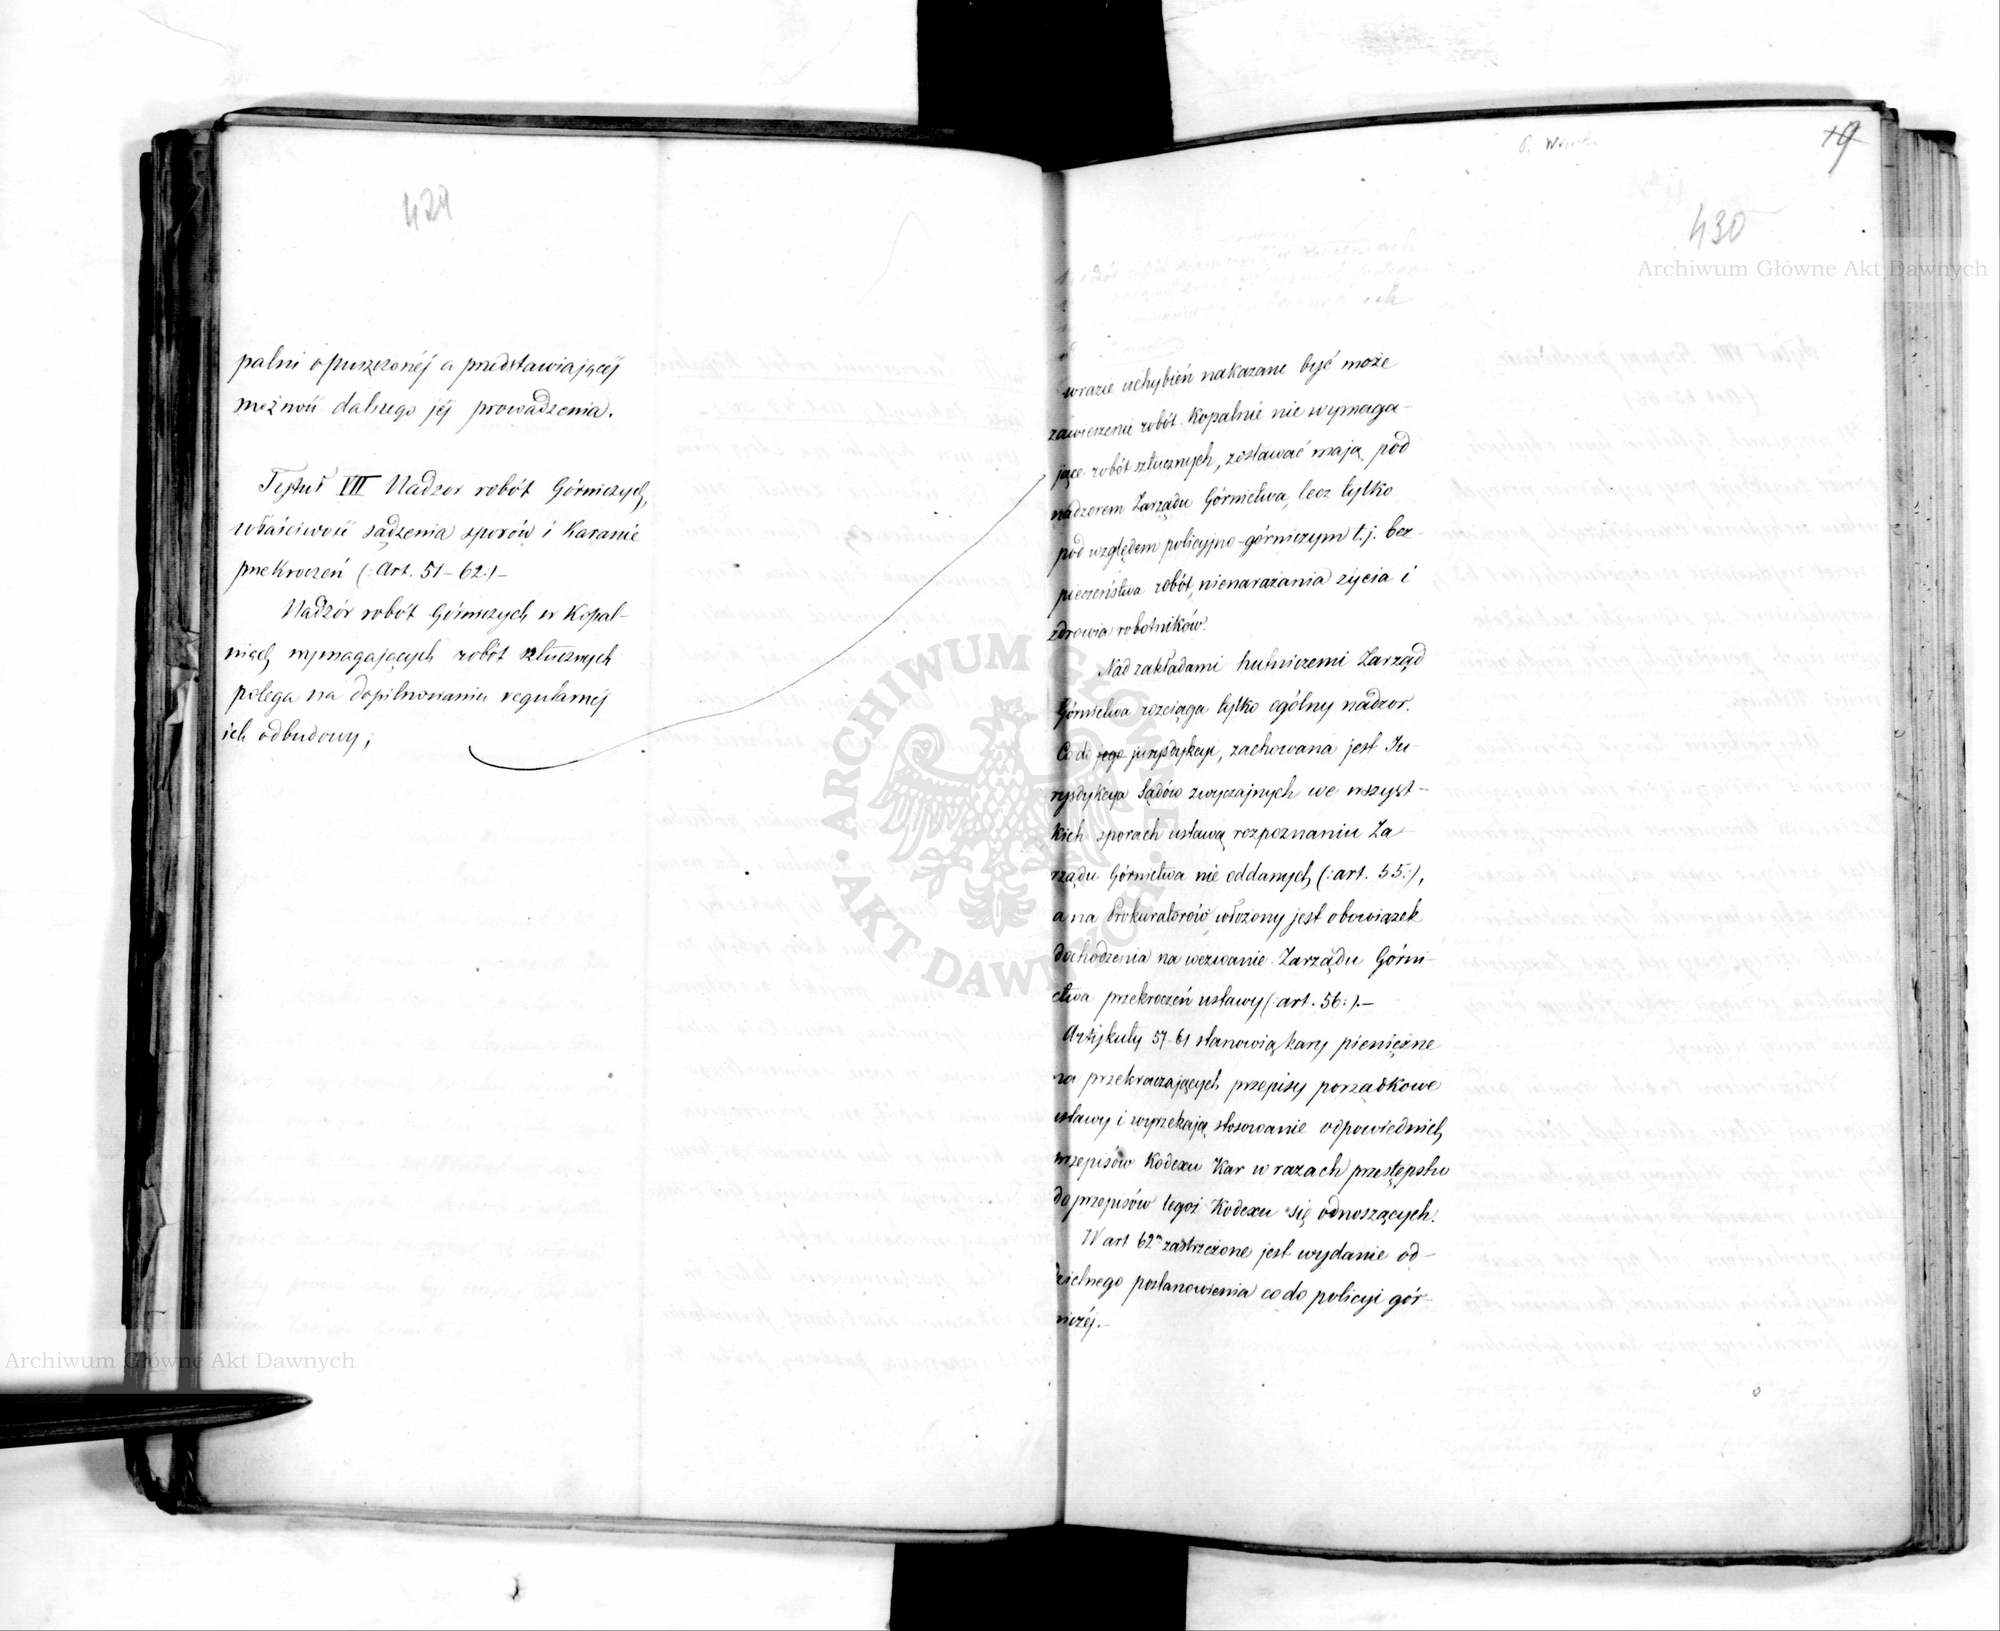 429
palni opuszczonéj a przedstawiającéj
możność dalszego jéj prowadzenia.
Tytuł VII Nadzor robót Górniczych,
właściwość sądzenia sporów i Karanie
przekroczeń (: Art. 51-62:)-
Nadzór robót Górniczych w Kopal-
niach wymagających robót sztucznych
polega na dopilnowaniu regularnéj
ich odbudowy;
19
430
wrazie uchybień nakazane być może
zawieszenie robót. Kopalnie nie wymaga-
jące robót sztucznych, zostawać mają pod
nadzorem Zarządu Górnictwa, lecz tylko
pod względem policyjno-górniczym t.j. bez-
pieczeństwa robót, nienarażania życia i
zdrowia robotników.
Nad zakładami hutniczemi Zarząd
Górnictwa rozciąga tylko ogólny nadzor.
Co do jego jurysdykcyi, zachowana jest Ju-
rysdykcya Sądów zwyczajnych we wszyst-
kich sporach ustawą rozpoznaniu Za-
rządu Górnictwa nie oddanych (: art. 55:),
a na Prokuratorów włożony jest obowiązek
dochodzenia na wezwanie Zarządu Górni-
ctwa przekroczeń ustawy (: art. 56:).-
Artykuły 57-61 stanowią kary pieniężne
na przekraczających przepisy porządkowe
ustawy i wyrzekają stosowanie odpowiednich
przepisów Kodexu Kar w razach przestępstw
do przepisów tegoż Kodexu się odnoszących.
W art 62m zastrzeżone jest wydanie od-
dzielnego postanowienia co do policyi gór-
niczéj.-
Archiwum Główne Akt Dawnych
Archiwum Główne Akt Dawnych
ARCHIWUM GŁÓWNE AKT DAWNYCH